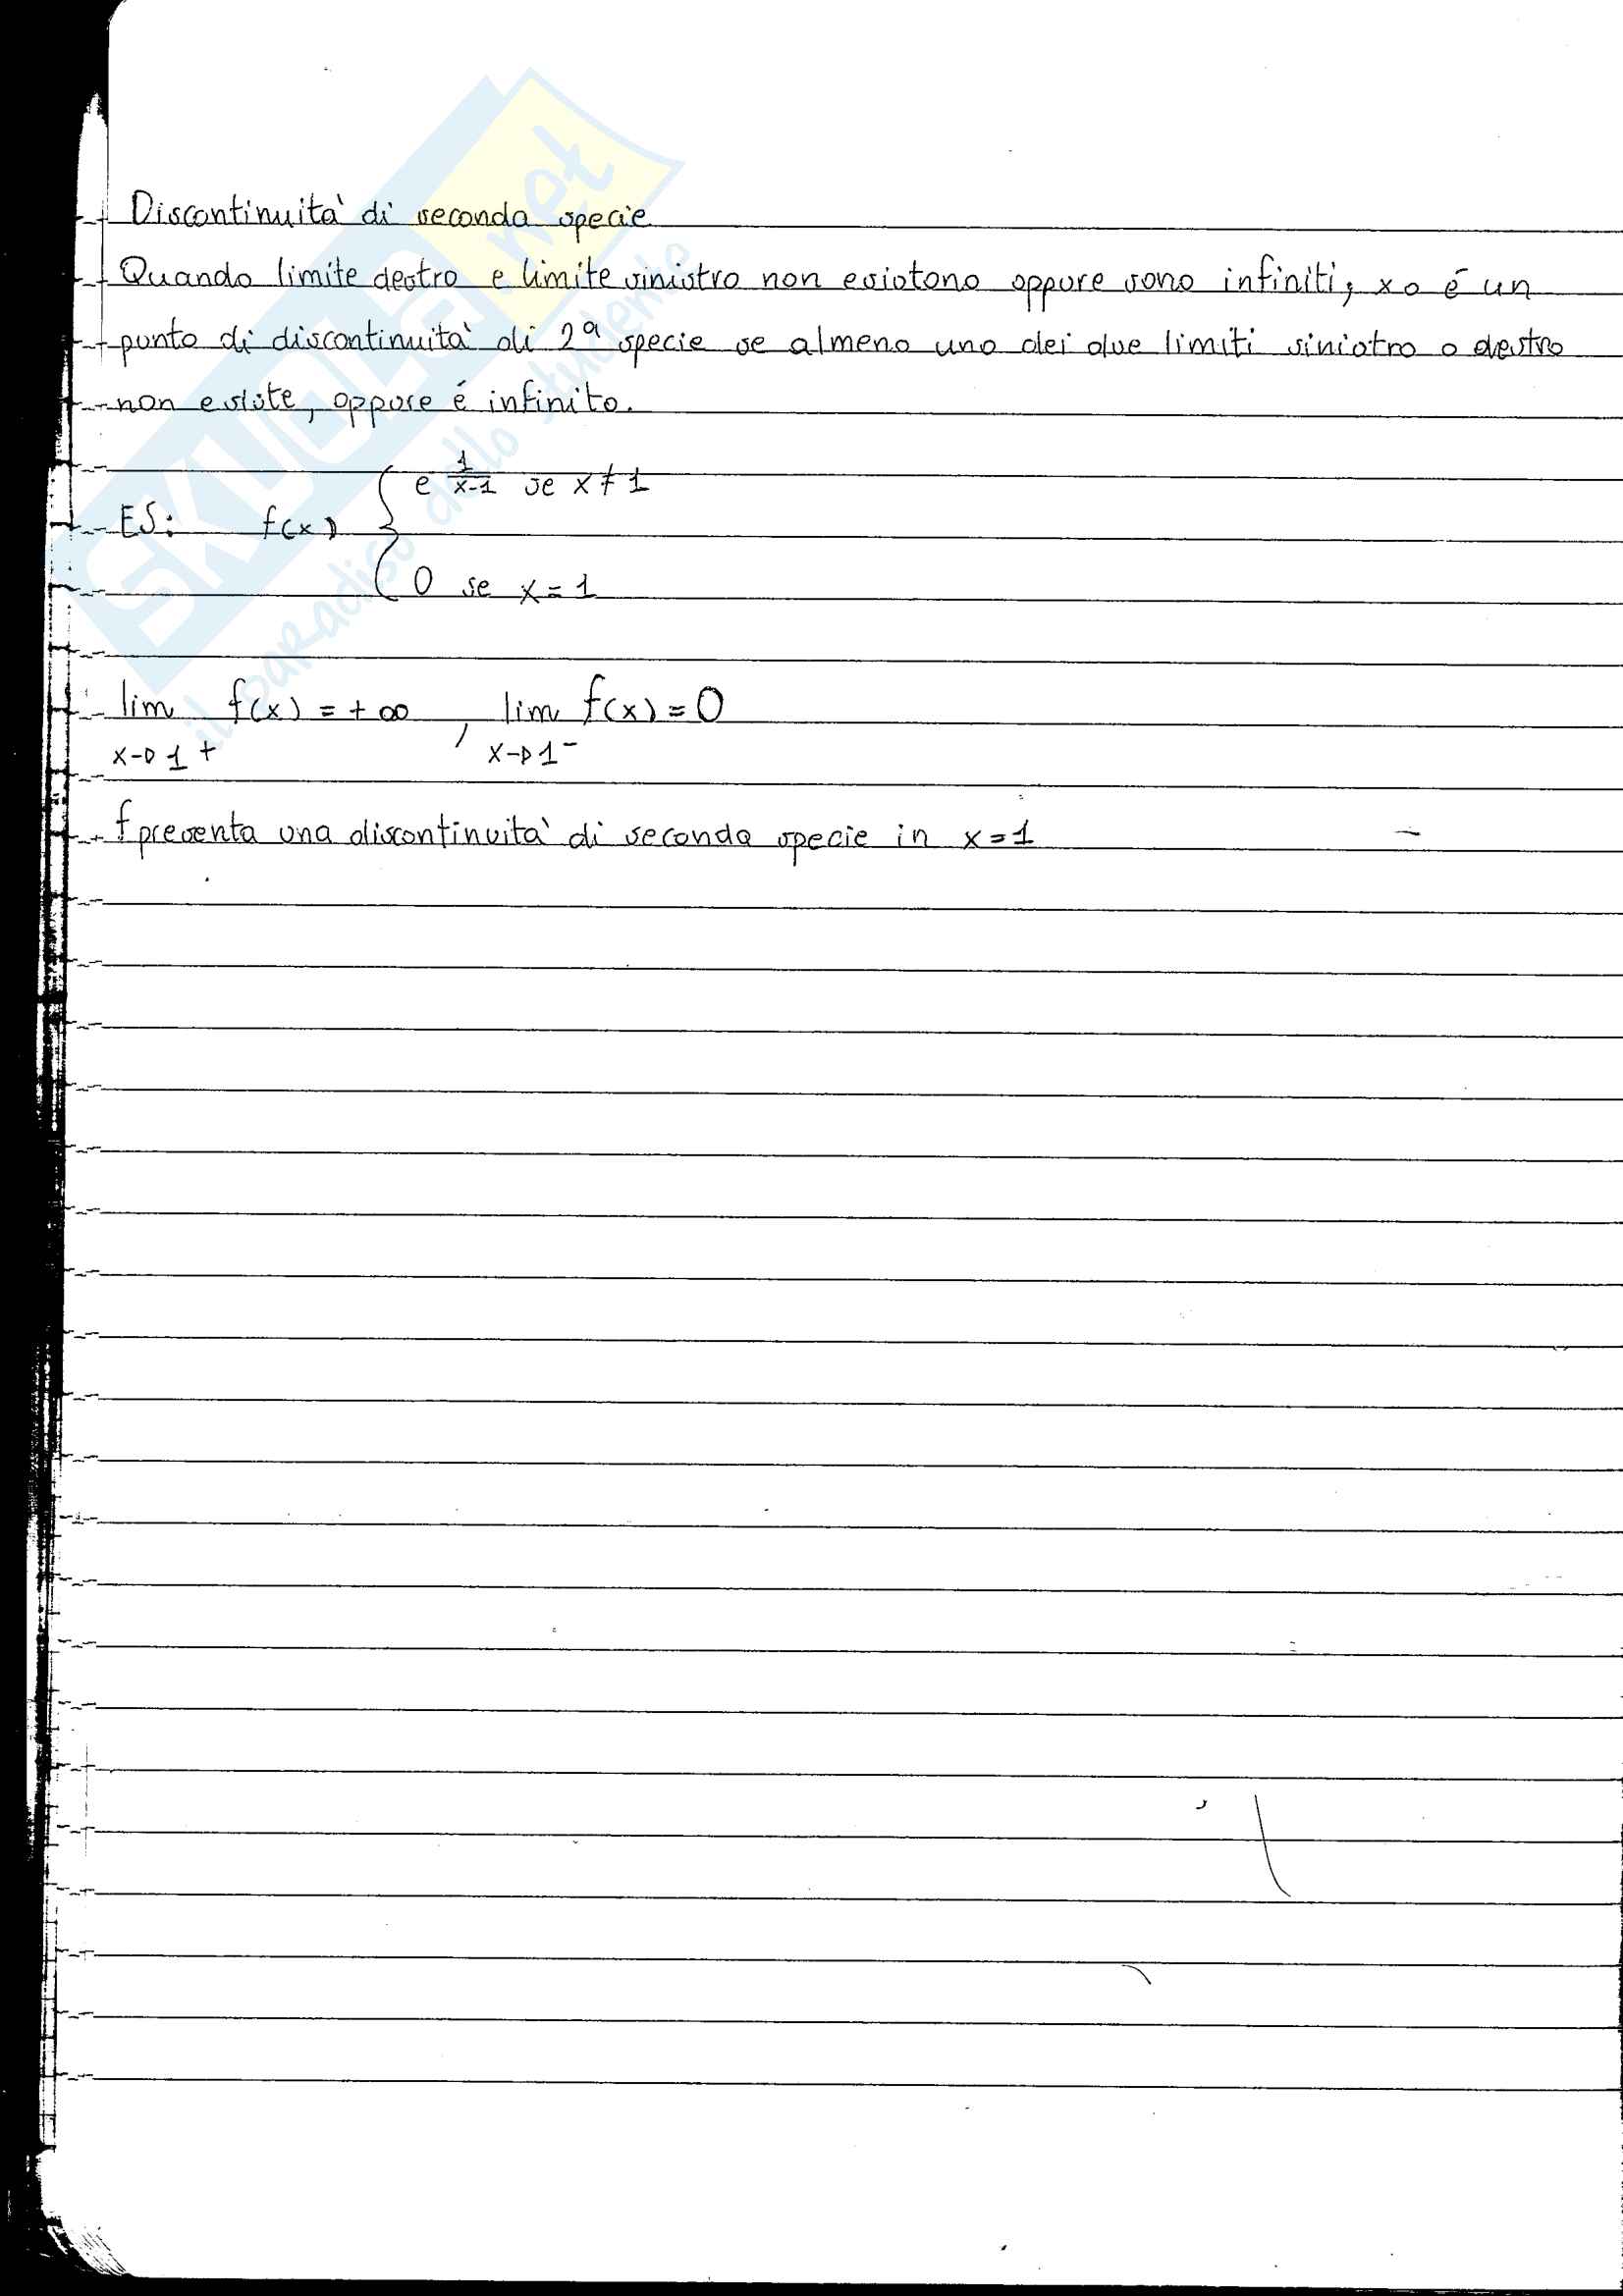 Discontinuità di seconda specie
Quando limite destro e limite sinistro non esistono oppure sono infiniti, x0 é un
punto di discontinuità di 2ª specie se almeno uno dei due limiti sinistro o destro
non esiste, oppure é infinito.
ES: f(x) { e^{1/(x-1)} se x≠1
0 se x=1
lim x→1+ f(x)=+∞, lim x→1- f(x)=0
f presenta una discontinuità di seconda specie in x=1
SKUOLA.net
il paradiso dello studente